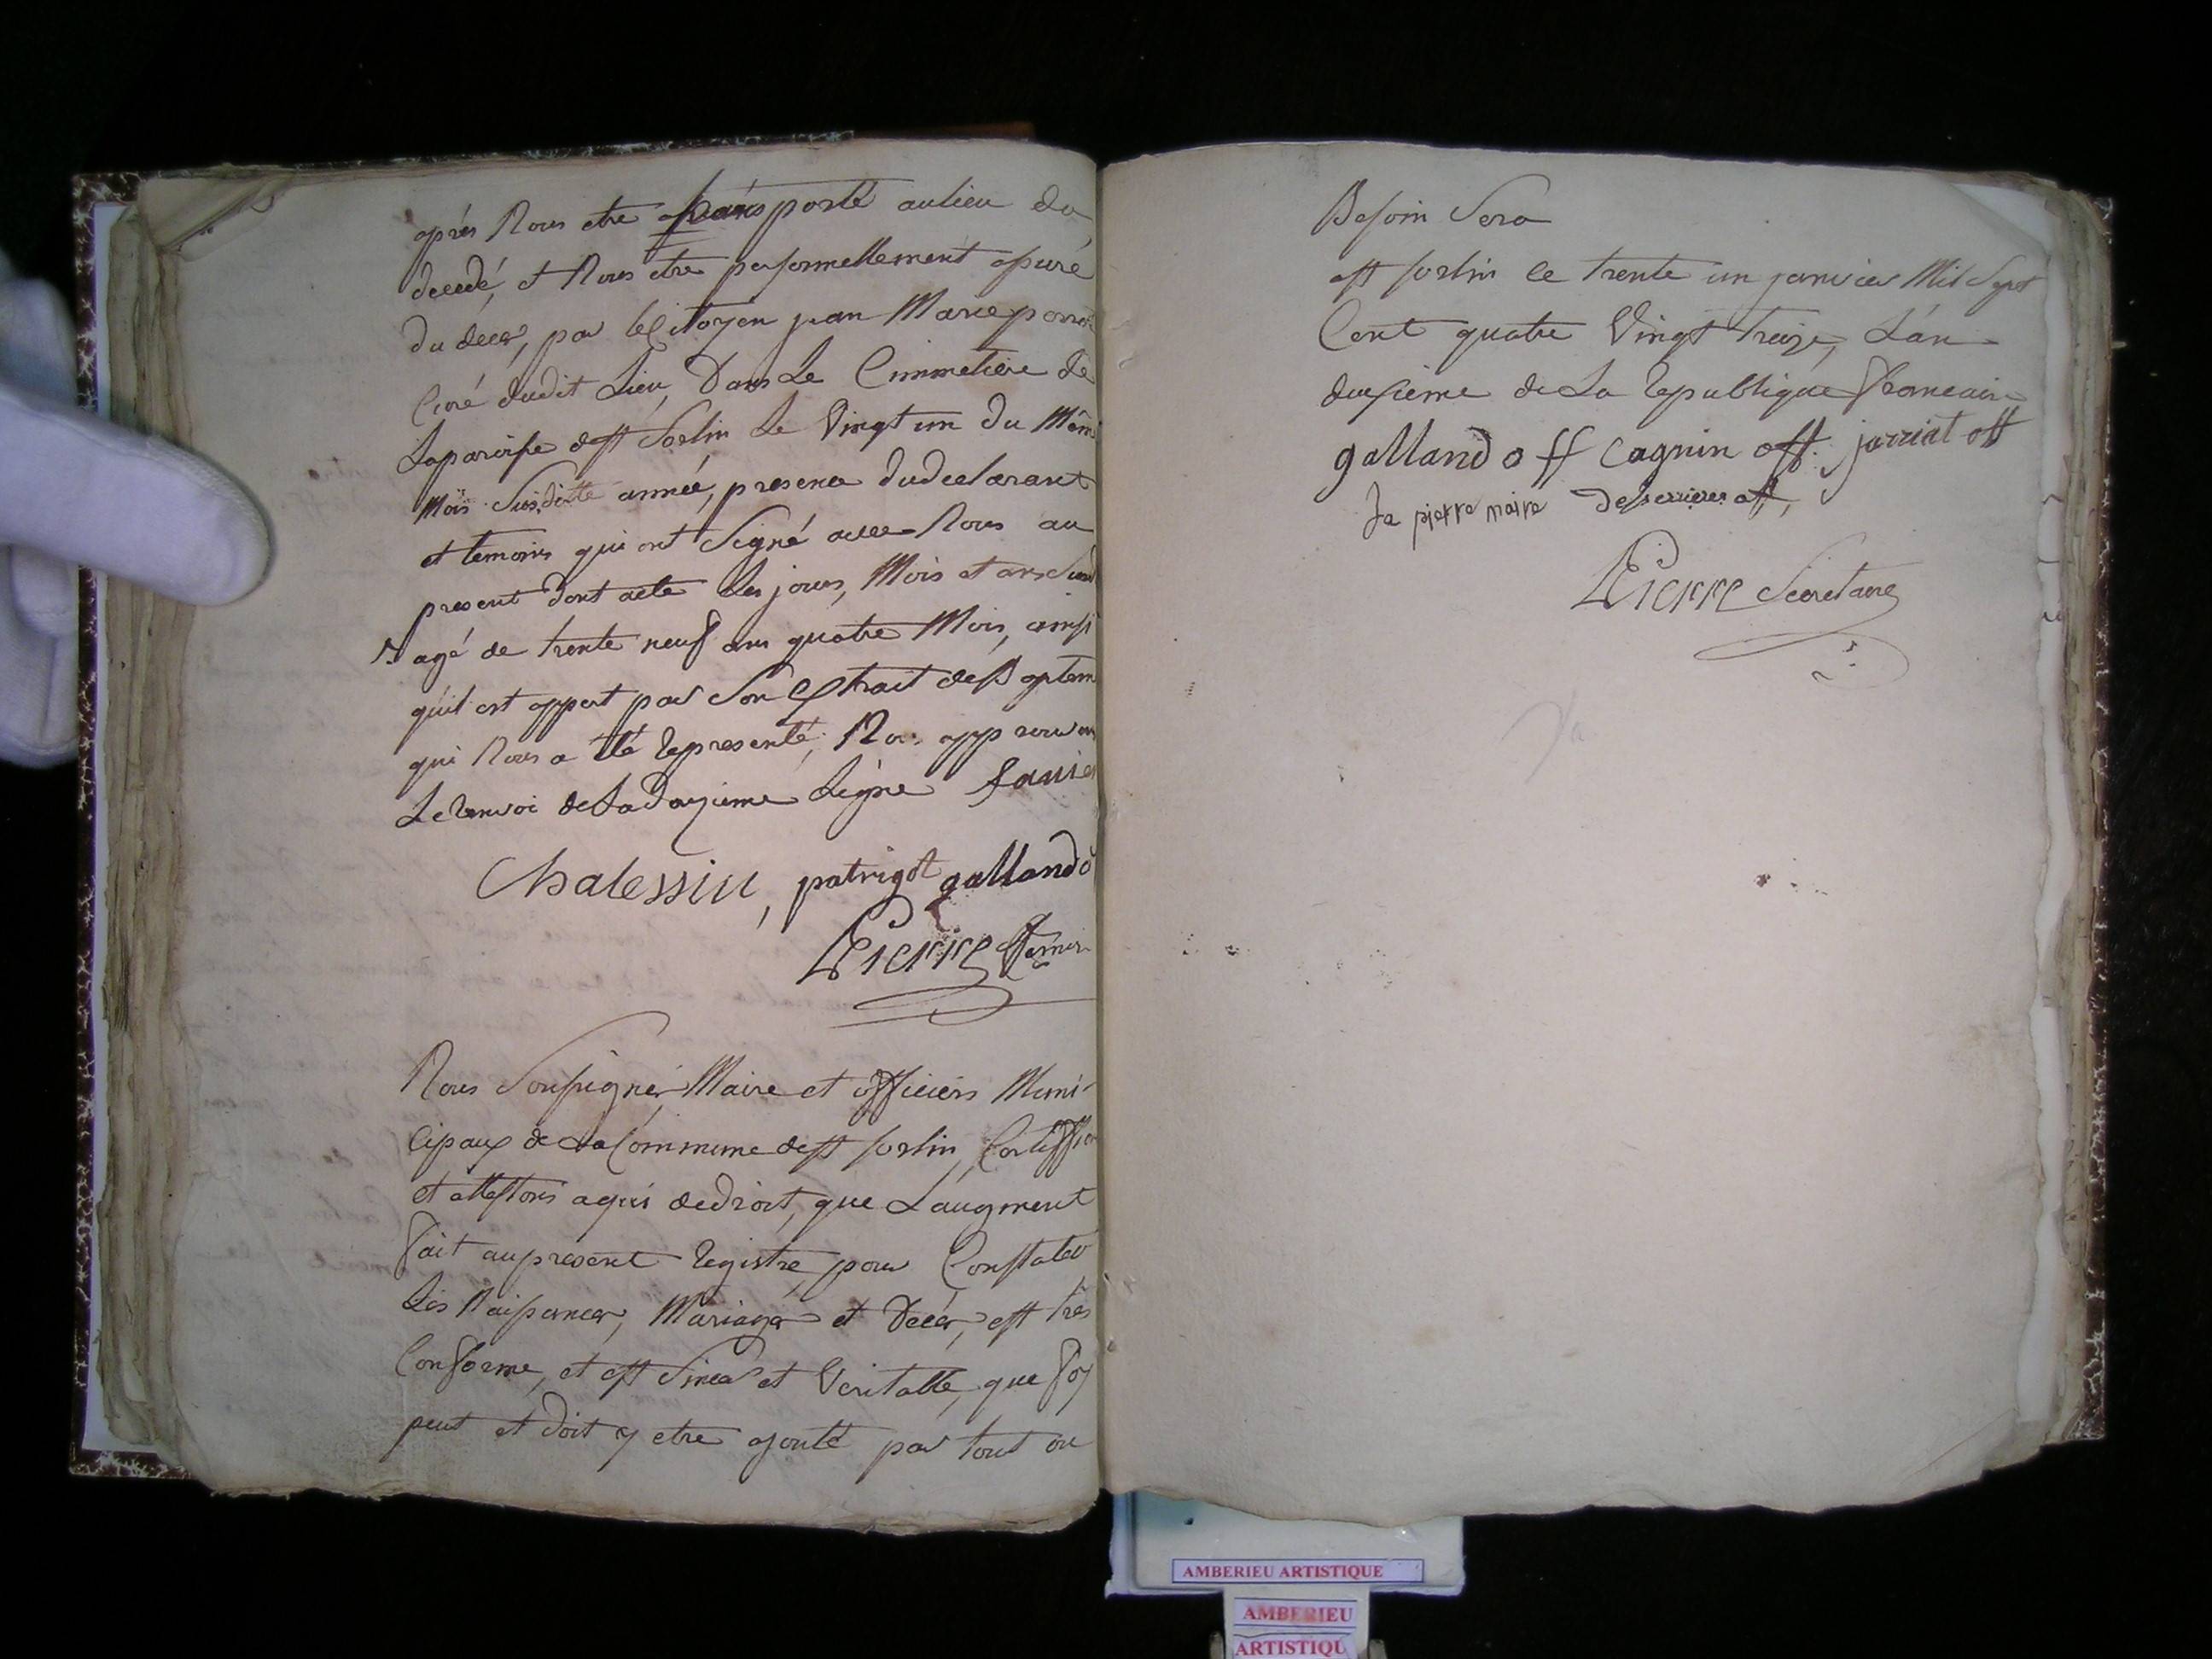 après Nous etre transporté au lieu du
decedé, et Nous etre personnellement assuré
du deces, par le Citoyen jean Marie
Curé dudit Lieu, Dans Le Cimmetiere de
La paroisse de st Sorlin Le Vingt un du Même
Mois Susditte année, presence du declarant
et temoins qui ont Signé avec Nous au
present dont acte Les jours, Mois et ans Susd
agé de trente neuf ans quatre Mois, ainsi
qu'il est appert par Son Extrait de Baptem
qui Nous a été Representé, Nous approuvons
Le Renvoi de La Douzieme Ligne favier
Chalessin, patrigot gallando
LPierre
Nous Soussignés Maire et officiers Muni-
cipaux de La Commune de st sorlin, Certiffion
et attestons a qui de droit, que L'augment
fait au present Registre, pour Constater
Les Naissances, Mariages et Décès, est tres
Conforme, et est Sincer et Veritable, que foy
peut et doit y etre ajouté par tout ou
Besoin Sera
a st sorlin le trente un janvier Mil Sept
Cent quatre Vingt treize, L'an
deuxieme de La Republique francaise
galland off cagnin off. jarriat off
pierre maire Desserrieres off,
LPierre Secretaire
AMBERIEU ARTISTIQUE
AMBERIEU
ARTISTIQU